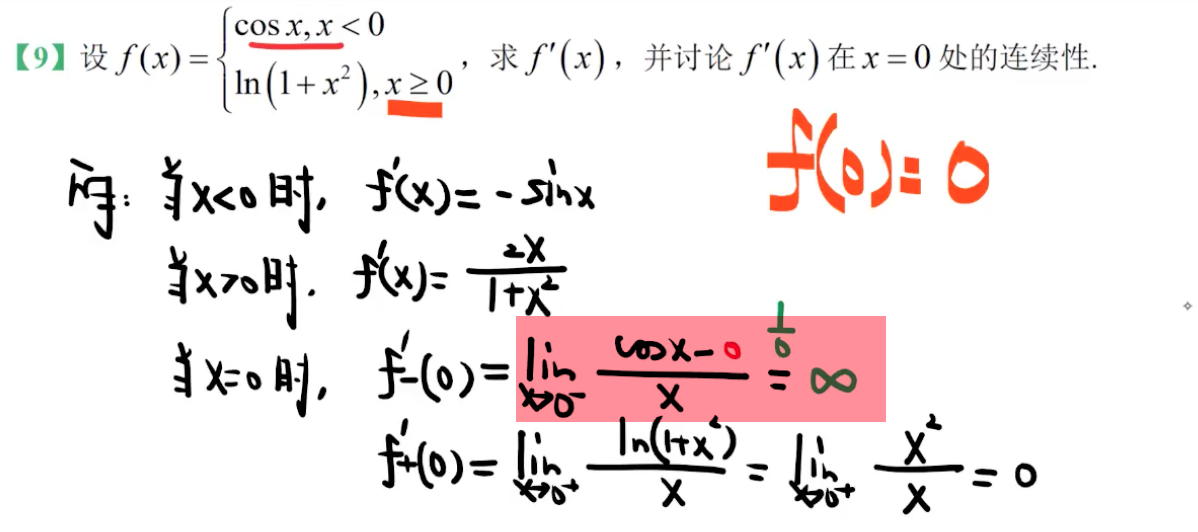 【9】设 f(x) = { cos x, x < 0 ; ln(1 + x²), x ≥ 0 ，求 f′(x)，并讨论 f′(x) 在 x = 0 处的连续性.
f(0) = 0
解: 当 x<0 时, f′(x) = - sinx
当 x>0 时. f′(x) = 2x / (1+x²)
当 x=0 时, f′₋(0) = lim x→0⁻ (cosx - 0) / x = 1/0 = ∞
f′₊(0) = lim x→0⁺ ln(1+x²) / x = lim x→0⁺ x² / x = 0